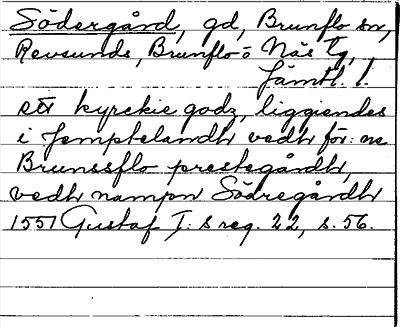 Södergård, gd, Brunflo sn,
Revsunds, Brunflo o Näs tg,
Jämtl. l.
ett kyrckie godz, liggiendes
i Jemptelandh vedh för:ne
Brunssflo prestegårdh,
vedh nampn Södregårdh
1551 Gustaf I:s reg. 22, s. 56.